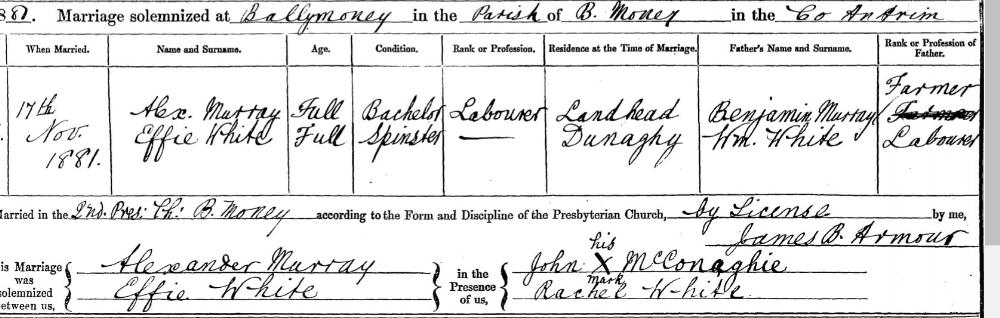 881. Marriage solemnized at Ballymoney in the Parish of B. Money in the Co Antrim
When Married. Name and Surname. Age. Condition. Rank or Profession. Residence at the Time of Marriage. Father's Name and Surname. Rank or Profession of Father.
Farmer
17th Alex. Murray Full Bachelor Labourer Landhead Benjamin Murray Farmer
Nov. Effie White Full Spinster — Dunaghy Wm. White Labourer
1881.
Married in the 2nd. Pres: Ch: B. Money according to the Form and Discipline of the Presbyterian Church, by License by me,
James B. Armour
is Marriage was solemnized between us, { Alexander Murray } in the Presence of us, { John X McConaghie
his mark
Effie White Rachel White